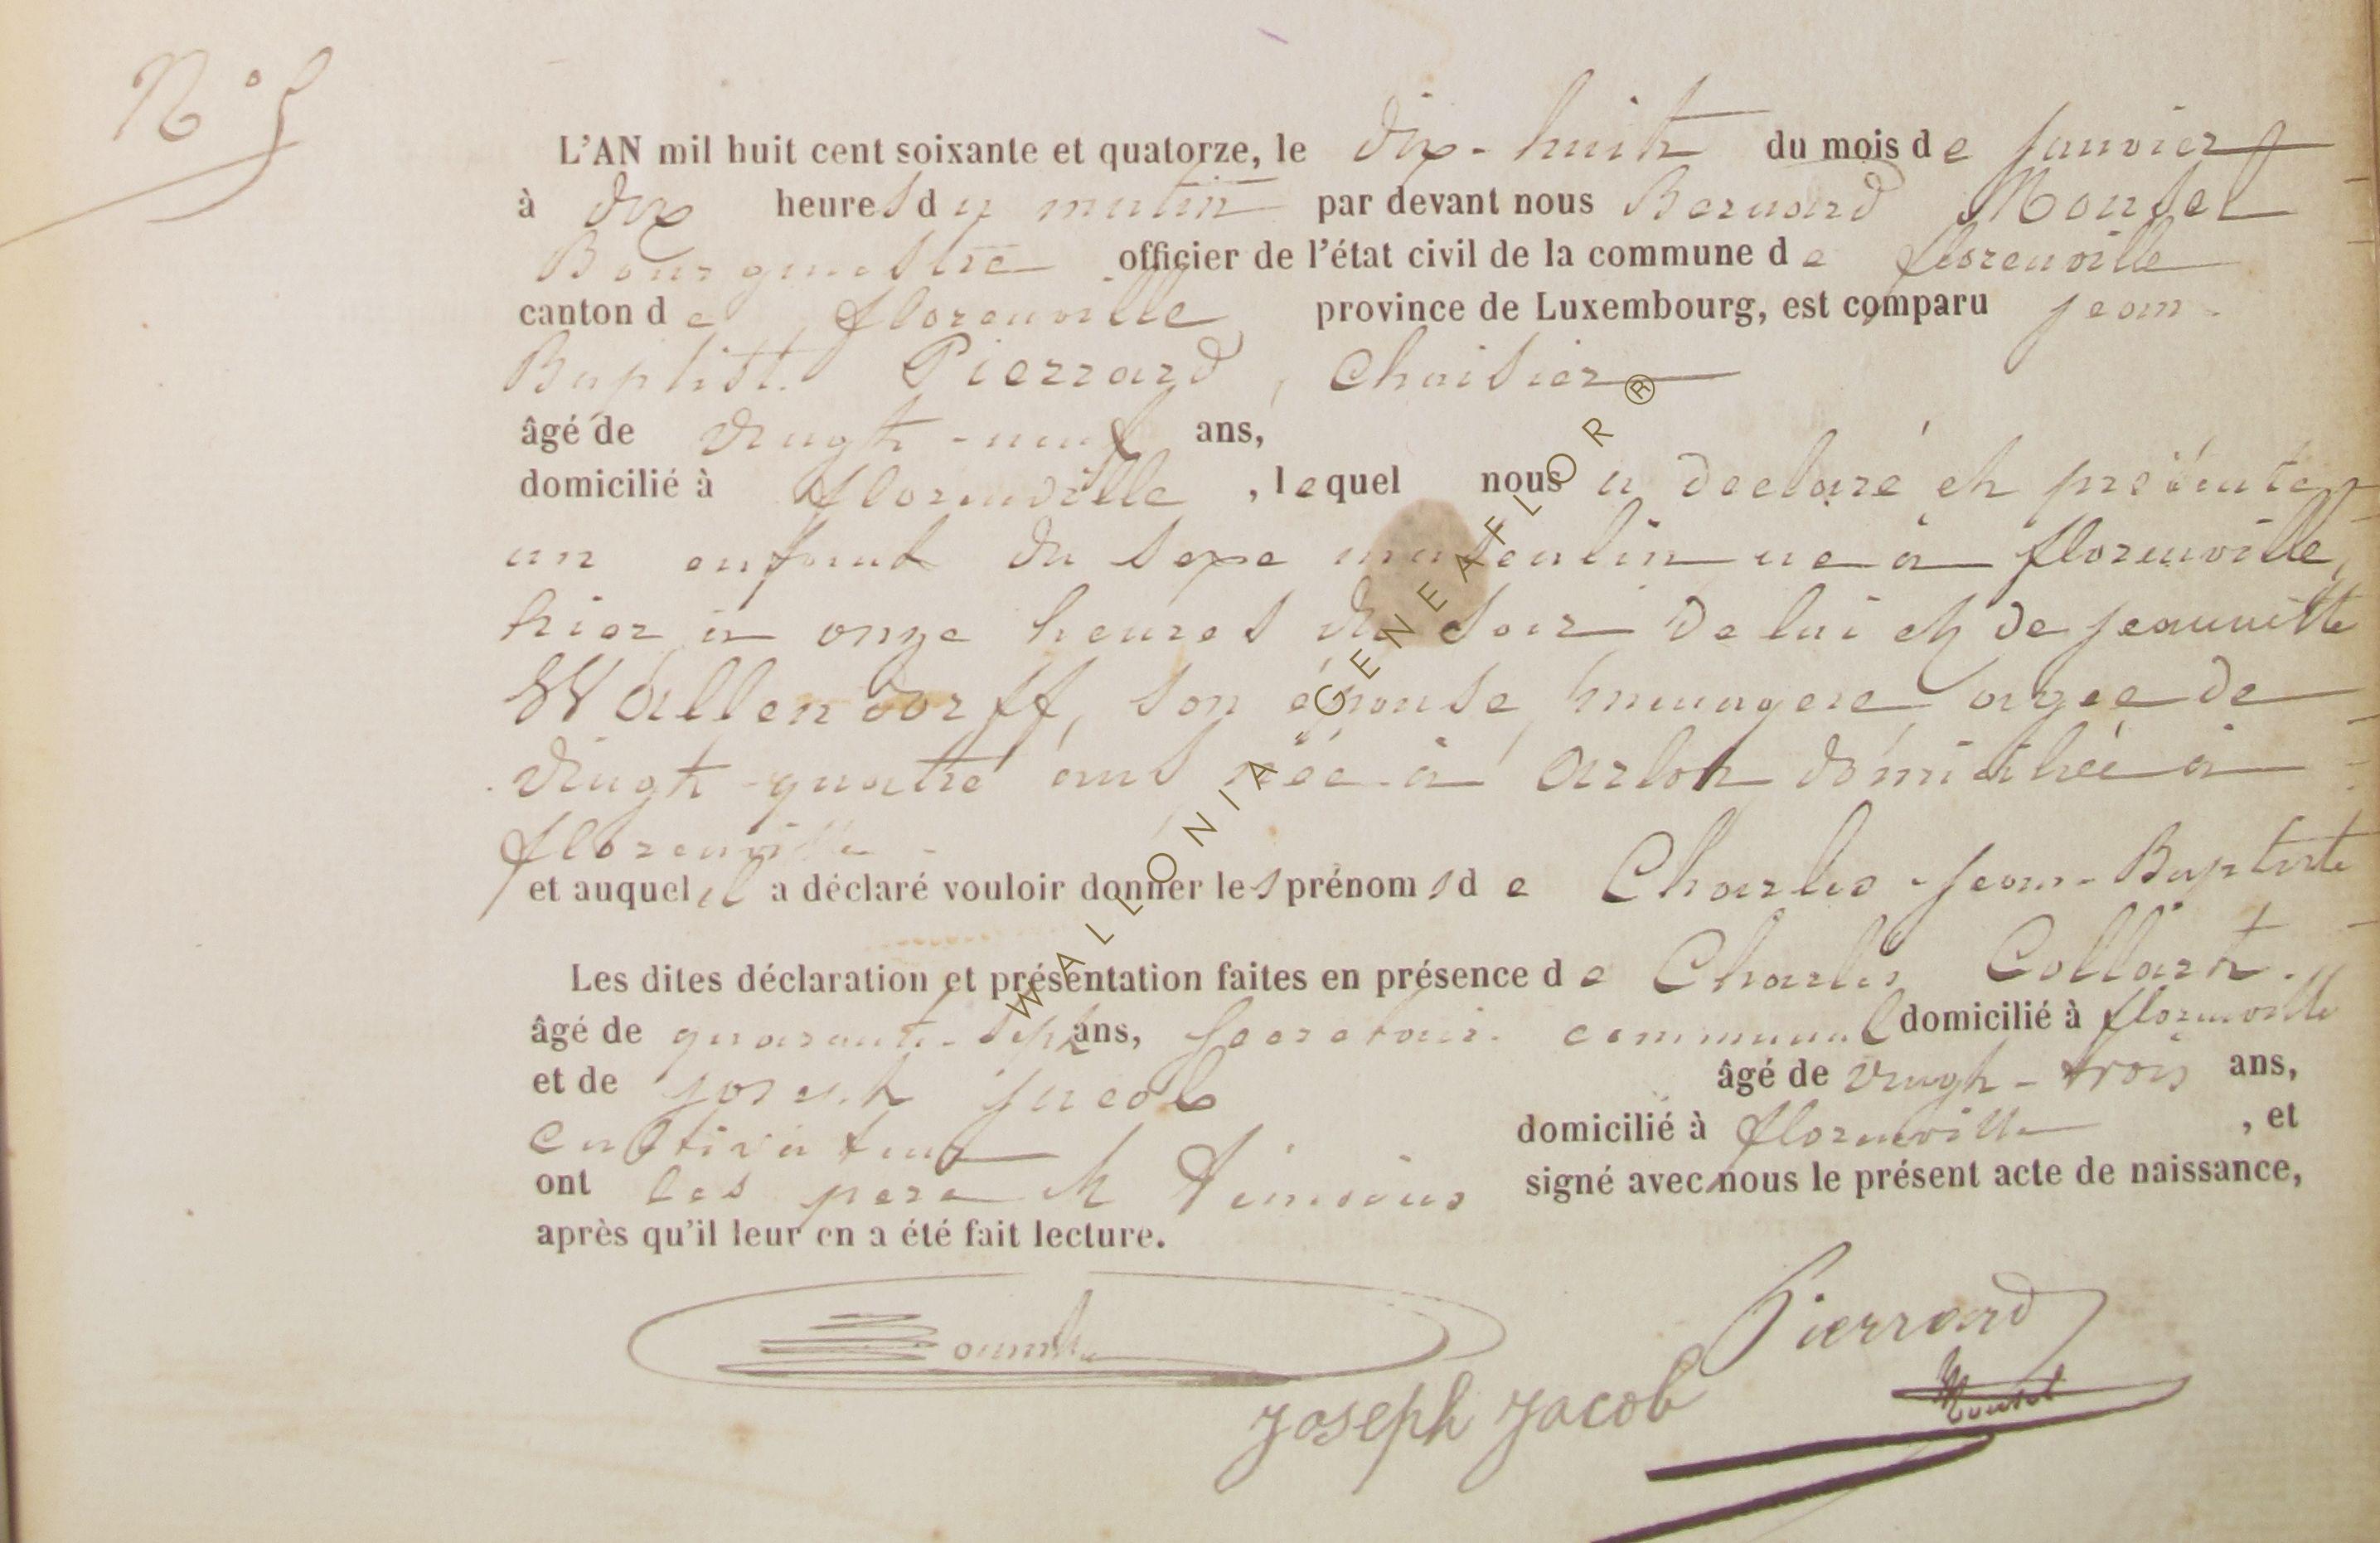 N° 5
L'AN mil huit cent soixante et quatorze, le dix-huit du mois de janvier
à dix heures du matin par devant nous Bernard Mousel
Bourgmestre officier de l'état civil de la commune de florenville
canton de florenville province de Luxembourg, est comparu jean-
Baptiste Pierrard, Chaisier
âgé de vingt-neuf ans,
domicilié à florenville, lequel nous a declaré et présenté
un enfant du sexe masculin né à florenville,
hier à onze heures du soir de lui et de jeannette
Wallendorff, son épouse, menagere agée de
vingt-quatre ans née à arlon domiciliée à
florenville -
et auquel il a déclaré vouloir donner les prénoms de Charles-jean-Baptiste
Les dites déclaration et présentation faites en présence de Charles Collart.
âgé de quarante-sept ans, Secretaire communal domicilié à florenville
et de joseph jacob âgé de vingt-trois ans,
cultivateur domicilié à florenville, et
ont les pere et témoins signé avec nous le présent acte de naissance,
après qu'il leur en a été fait lecture.
Pierrard
Joseph Jacob
Mousel
WALLONIA "GENEAFLOR®